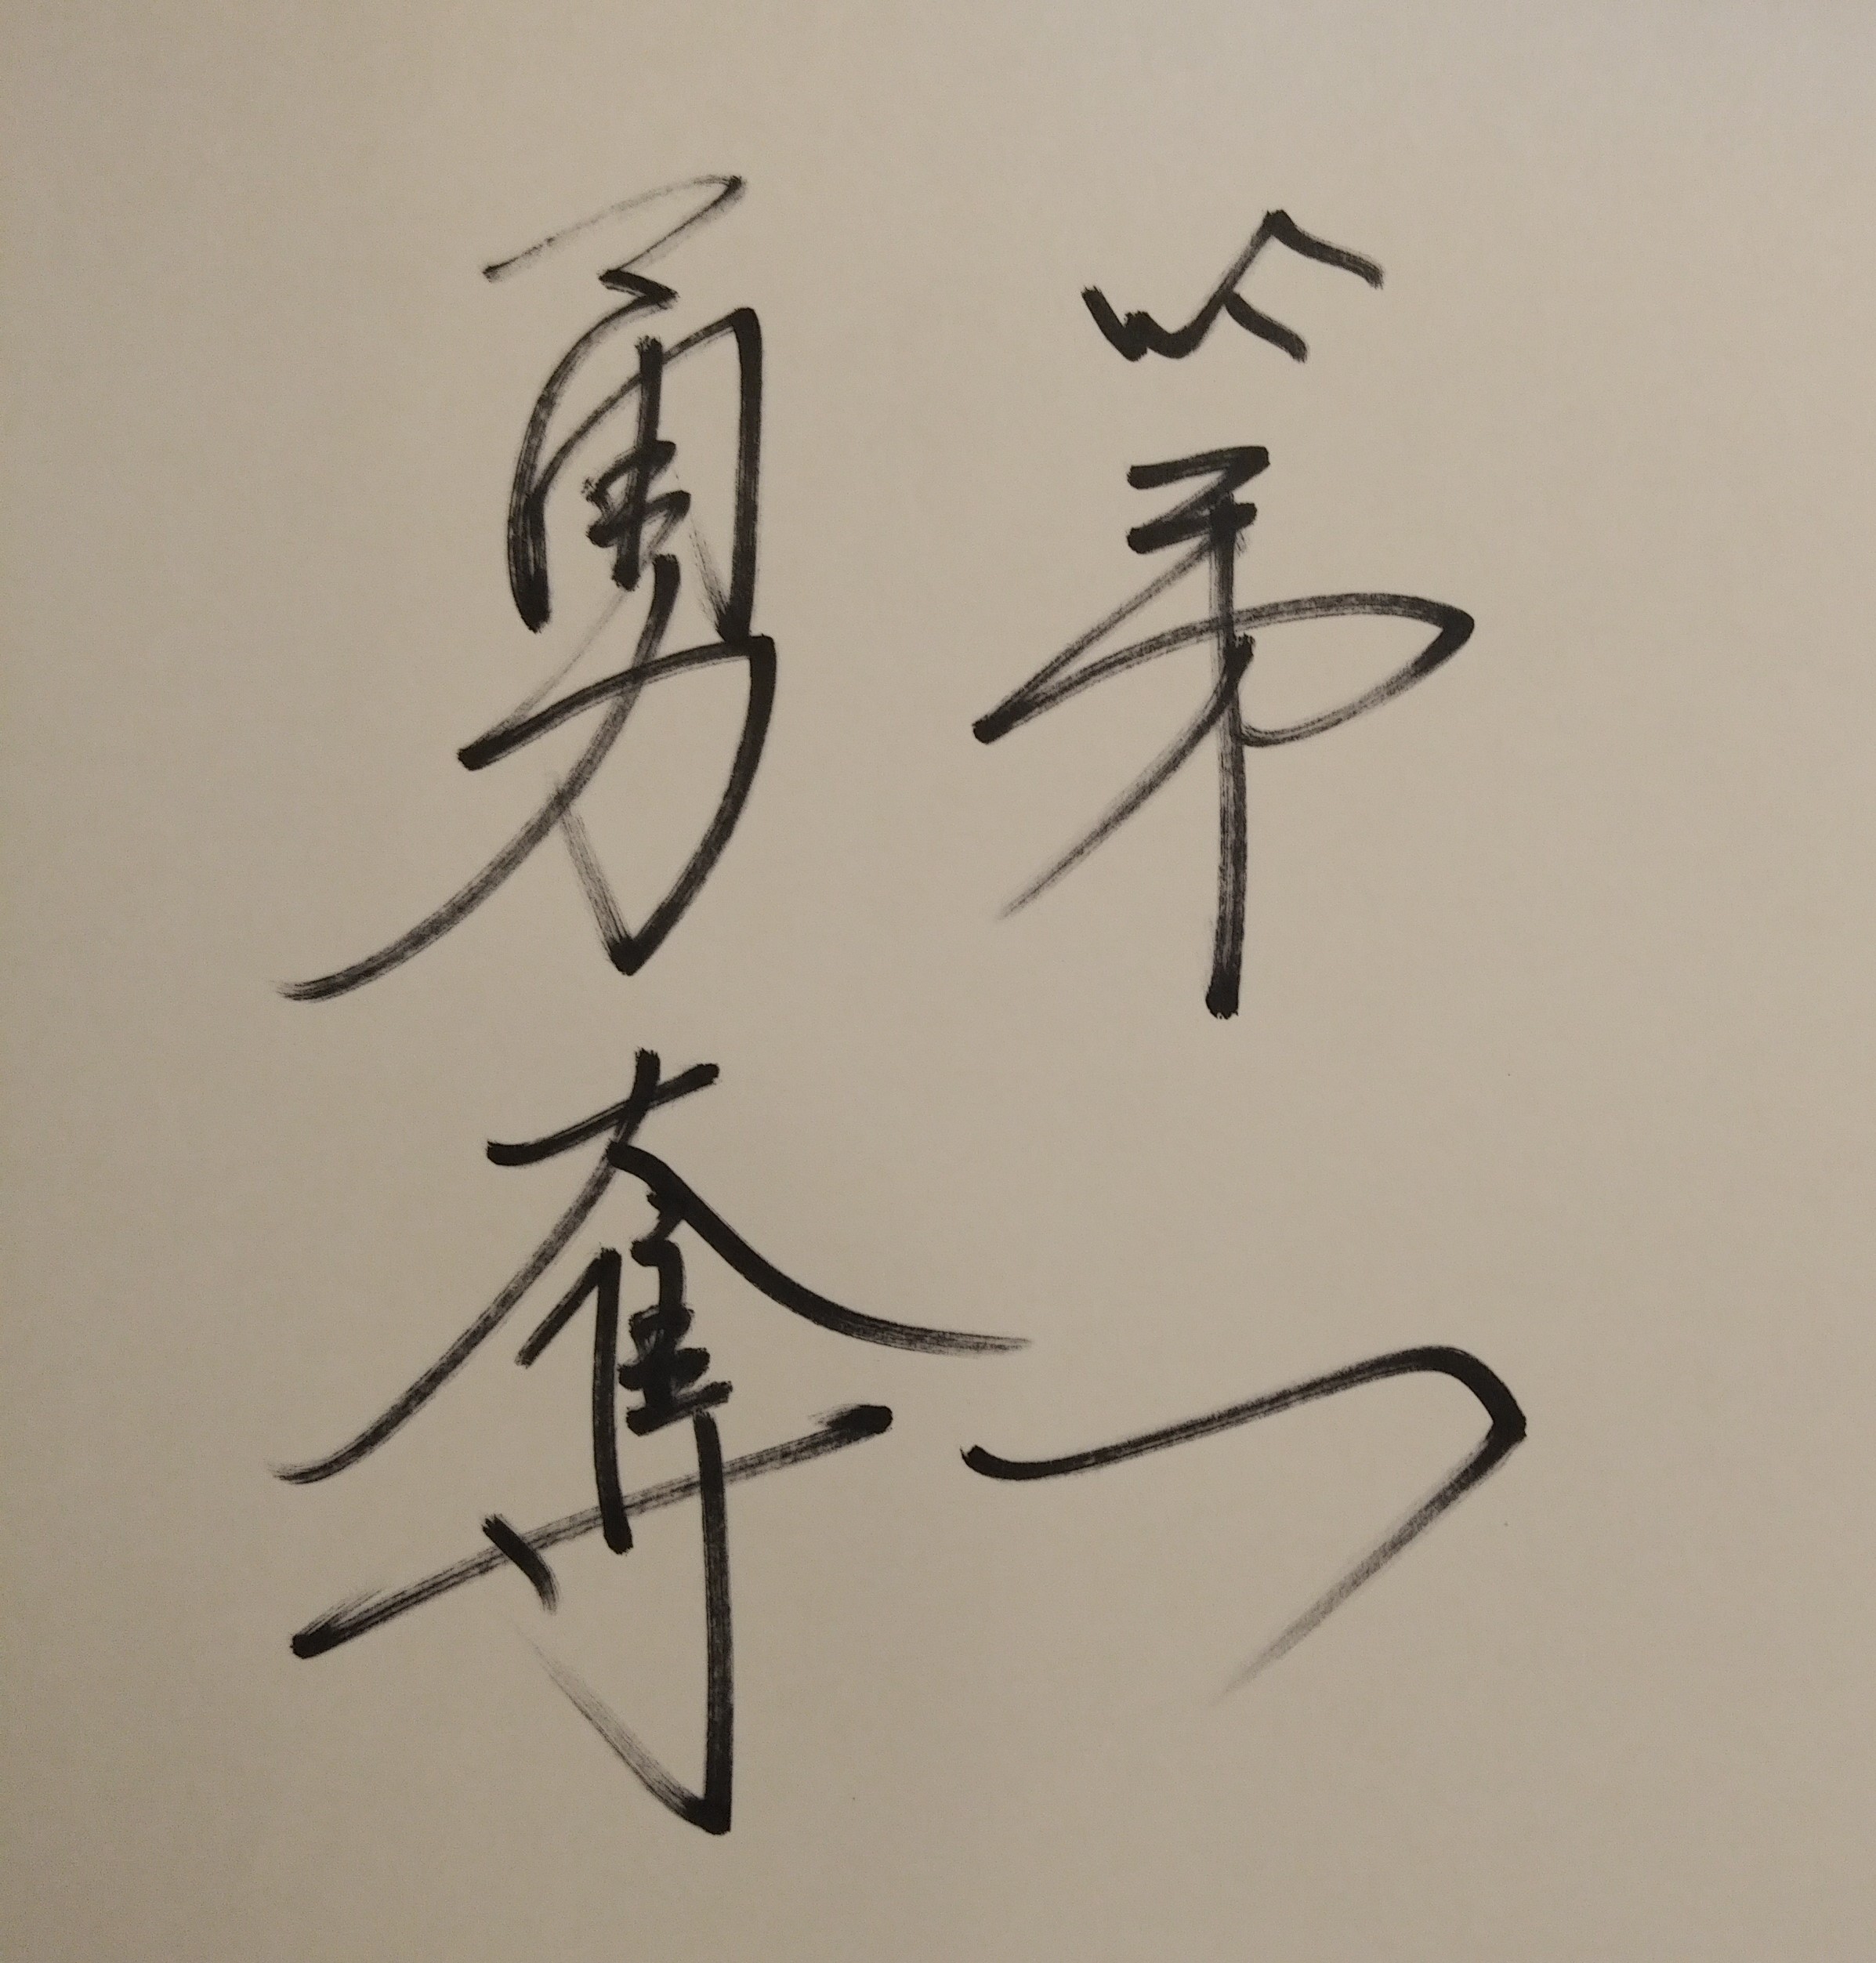 勇奪
第一